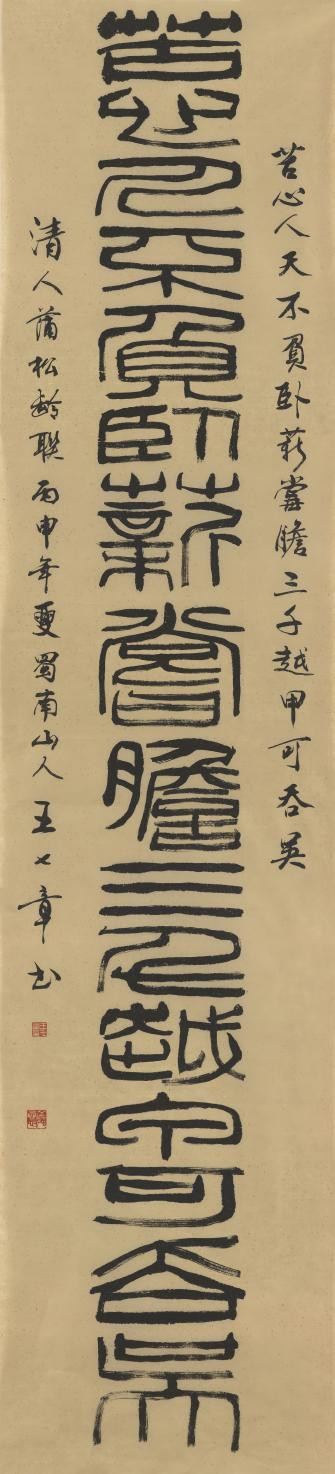 苦心人天不負卧薪嘗膽三千越甲可吞吴
苦心人天不負臥薪嘗膽三千越甲可吞吳
清人蒲松齡聯丙申年夏蜀南山人王七章书